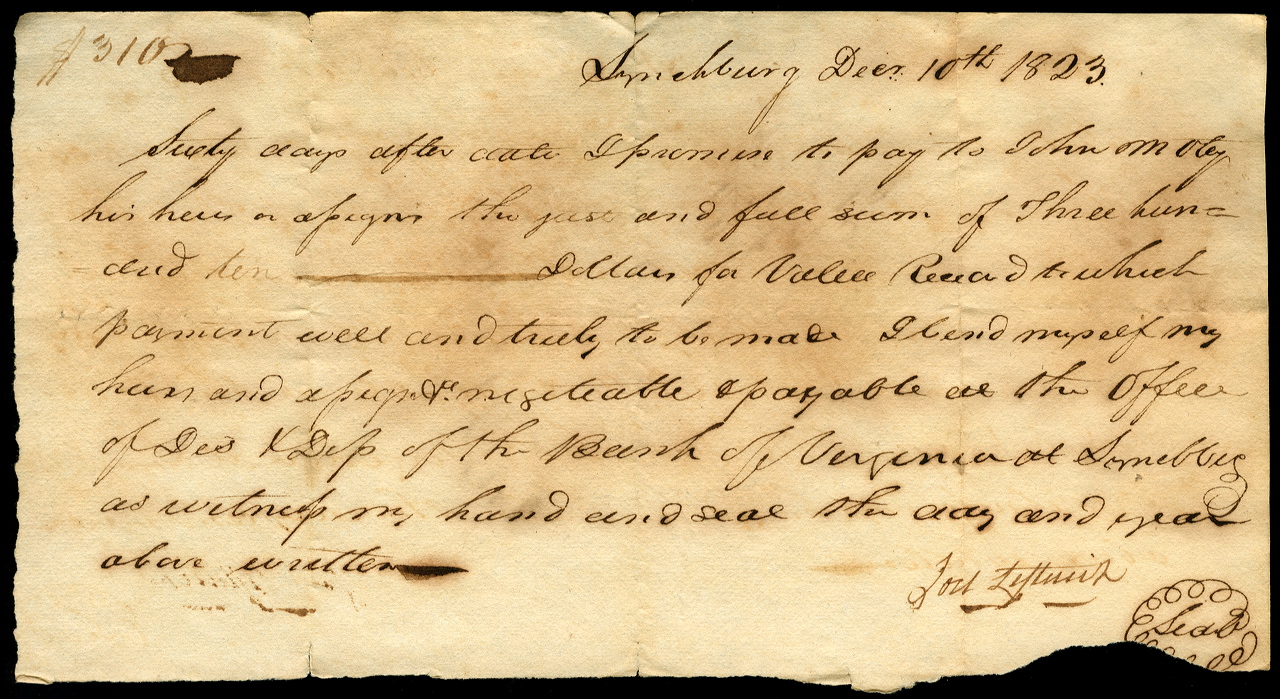 $310
Lynchburg Decr. 10th 1823.
Sixty days after date I promise to pay to John M Otey
his heirs or assigns the just and full sum of Three hun=
=dred ten Dollars for Value Received to which
payment well and truly to be made I bind myself my
heirs and assigns &c negotiable & payable at the Office
of Dis & Dep of the Bank of Virginia at Lynchburg
as witness my hand and seal the day and year
above written
Joel Leftwich
Seal